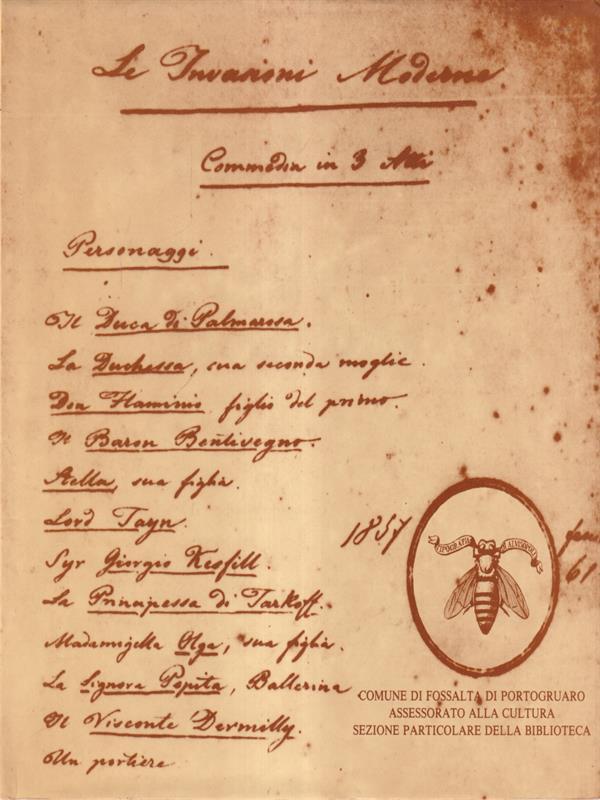 Le Invasioni Moderne
Commedia in 3 Atti
Personaggi.
Il Duca di Palmarosa.
La Duchessa, sua seconda moglie.
Don Flaminio figlio del primo.
Il Baron Bentivegno.
Stella, sua figlia.
Lord Tayn.
Syr Giorgio Kesfill.
La Principessa di Tarkoff.
Madamigella Olga, sua figlia.
La Signora Pepita, Ballerina
Il Visconte Dermilly.
Un portiere
1857
TIPOGRAFIA D'ALVISOPOLI
61
COMUNE DI FOSSALTA DI PORTOGRUARO
ASSESSORATO ALLA CULTURA
SEZIONE PARTICOLARE DELLA BIBLIOTECA